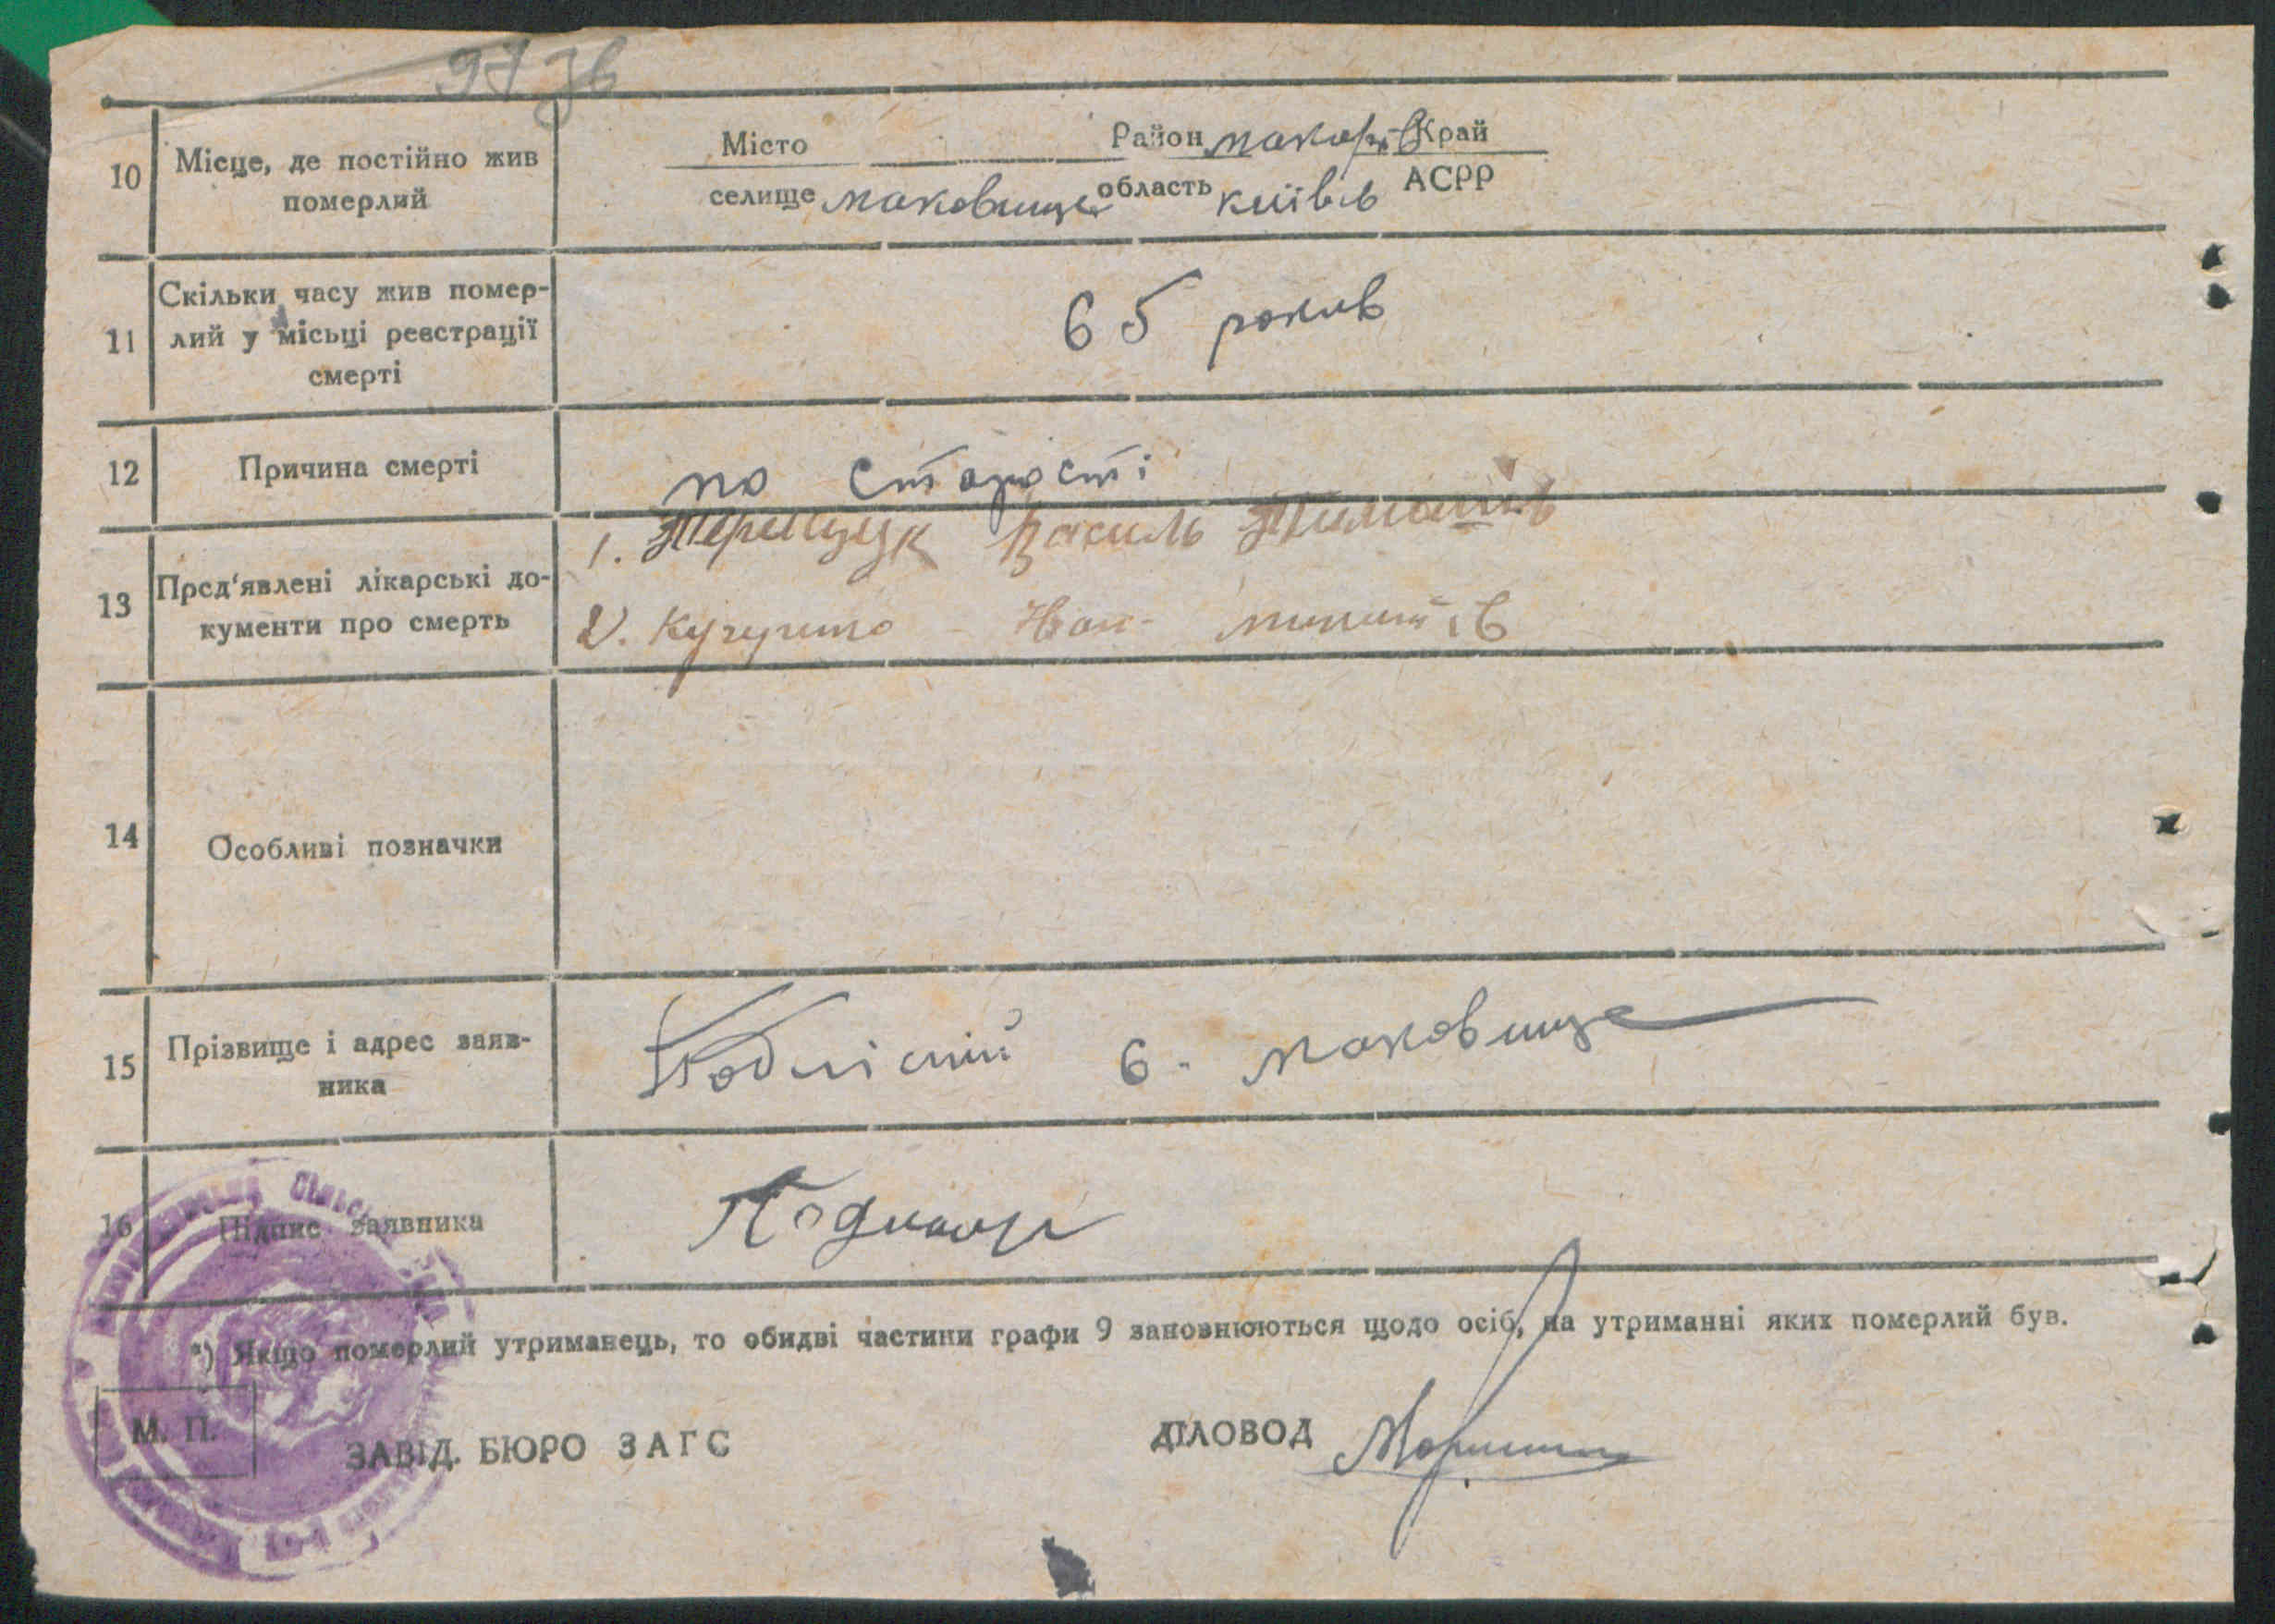 97 зв
10 Місце, де постійно жив померлий
Місто Район макарів Край
селище маковище область київсь АСРР
11 Скільки часу жив помер-
лий у місьці реєстрації
смерті
65 років
12 Причина смерті
по старості
13 Пред'явлені лікарські до-
кументи про смерть
1. Терещук Василь Тимошів
2. Кучу Іван
14 Особливі позначки
15 Прізвище і адрес заяв-
ника
с. маковище
16 Підпис заявника
*) Якщо померлий утриманець, то обидві частини графи 9 заповнюються щодо осіб, на утриманні яких померлий був.
М. П.
ЗАВІД. БЮРО ЗАГС
ДІЛОВОД